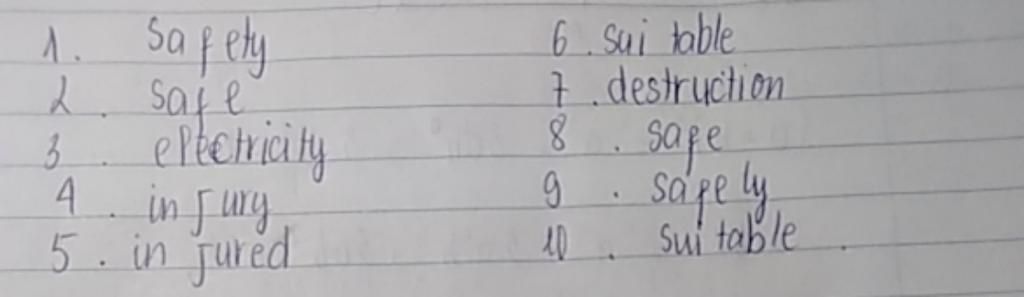 1. safety
2. safe
3. electricity
4. injury
5. injured
6. suitable
7. destruction
8. safe
9. safely
10. suitable.